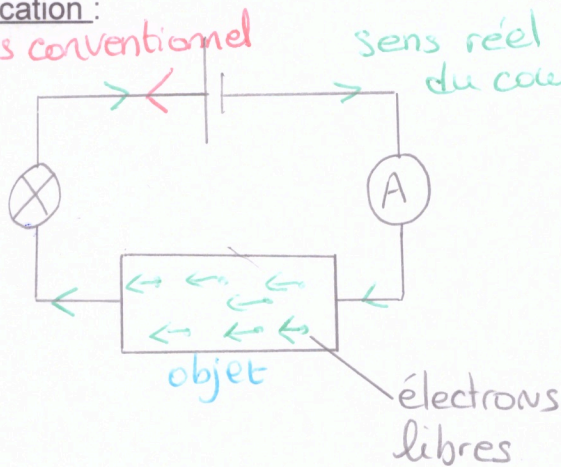 cation :
s conventionnel
sens réel
du cou
A
objet
électrons
libres